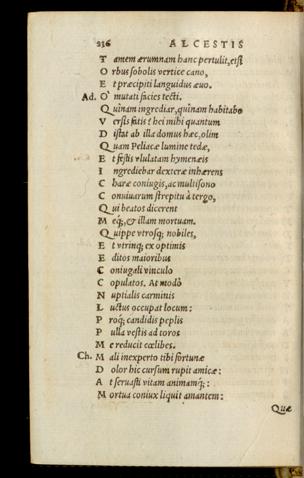 236 ALCESTIS
T amem ærumnam hanc pertulit, etsi
O rbus sobolis vertice cano,
E t præcipiti languidus æuo.
Ad. O' mutati facies tecti.
Q uînam ingrediar, quînam habitabo
V ersis fatis? hei mihi quantum
D istat ab illa domus hæc, olim
Q uam Peliacæ lumine tedæ,
E t festis vlulatum hymenæis
I ngrediebar dexteræ inhærens
C haræ coniugis, ac multisono
C onuiuarum strepitu à tergo,
Q ui beatos dicerent
M eq;, & illam mortuam.
Q uippe vtrosq; nobiles,
E t vtrinq; ex optimis
E ditos maioribus
C oniugali vinculo
C opulatos. At modò
N uptialis carminis
L uctus occupat locum:
P roq; candidis peplis
P ulla vestis ad toros
M e reducit cœlibes.
Ch. M ali inexperto tibi fortunæ
D olor hic cursum rupit amicæ:
A t seruasti vitam animamq;:
M ortua coniux liquit amantem:
Quæ